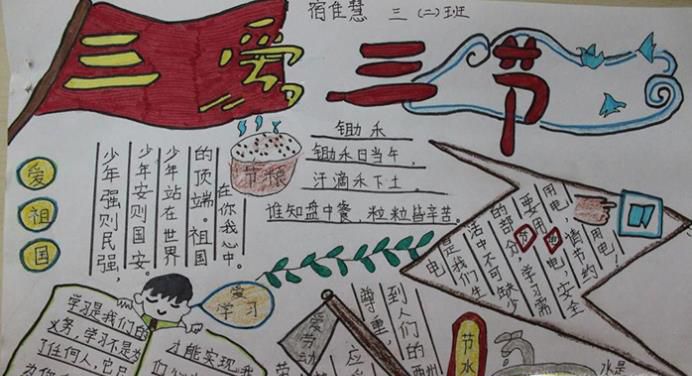 宿佳慧 三(二)班
三爱
三节
爱祖国
少年强则民强，
少年安则国安。
少年站在世界
的顶端。祖国
在你我心中。
节粮
锄禾
锄禾日当午，
汗滴禾下土，
谁知盘中餐，粒粒皆辛苦。
电
是我们生
活中不可缺少
的部分，学习需
要用电，安全
用电，请节约
用电！
爱学习
学习是我们的
义务，学习不是为
了任何人，它只
为你
才能实现我
爱劳动
劳
应
尊重，
到人们的
节水
水是